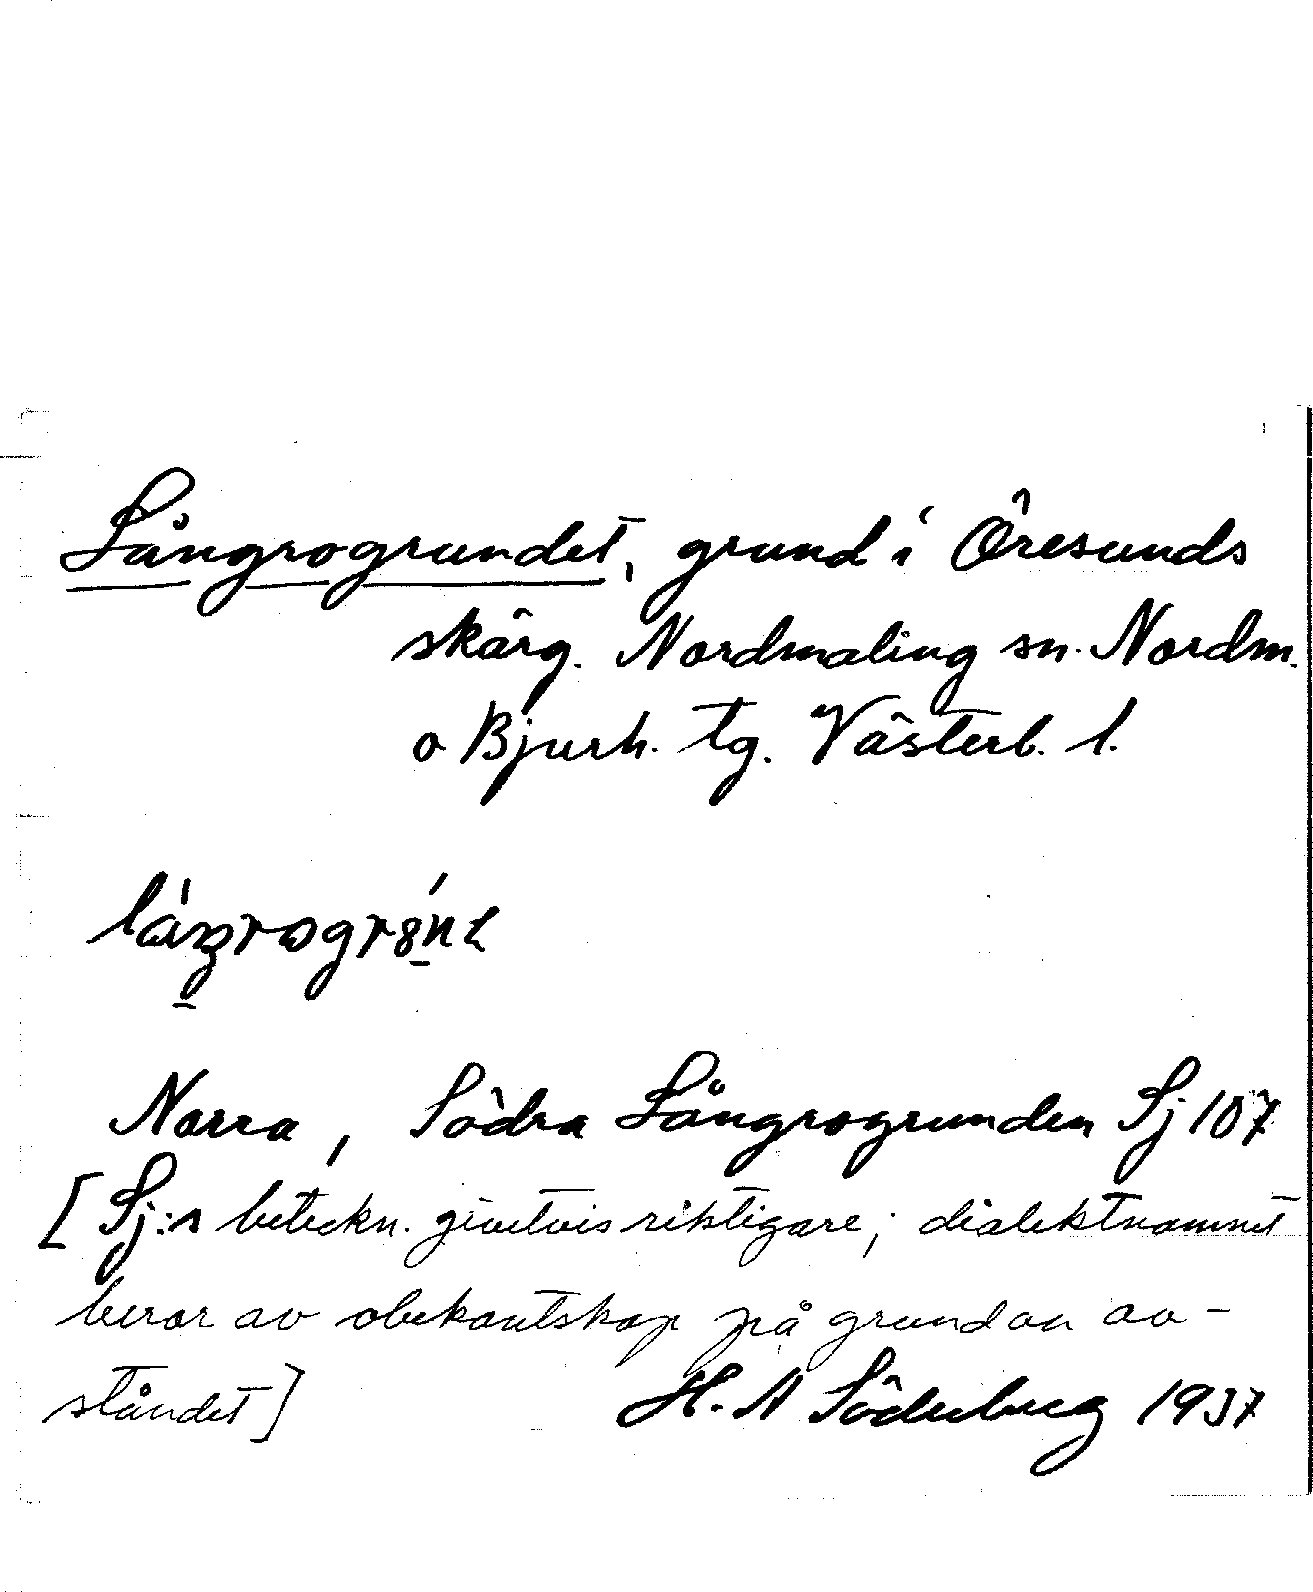 Långrogrundet, grund i Öresunds
skärg. Nordmaling sn. Nordm.
o Bjurh. tg. Västerb. l.
Norra, Södra Långrogrunden Sj 107
[Sj:s beteckn. givetvis riktigare; dialektnamnet
beror av obekantskap på grund av av-
ståndet]
H. A Söderberg 1937